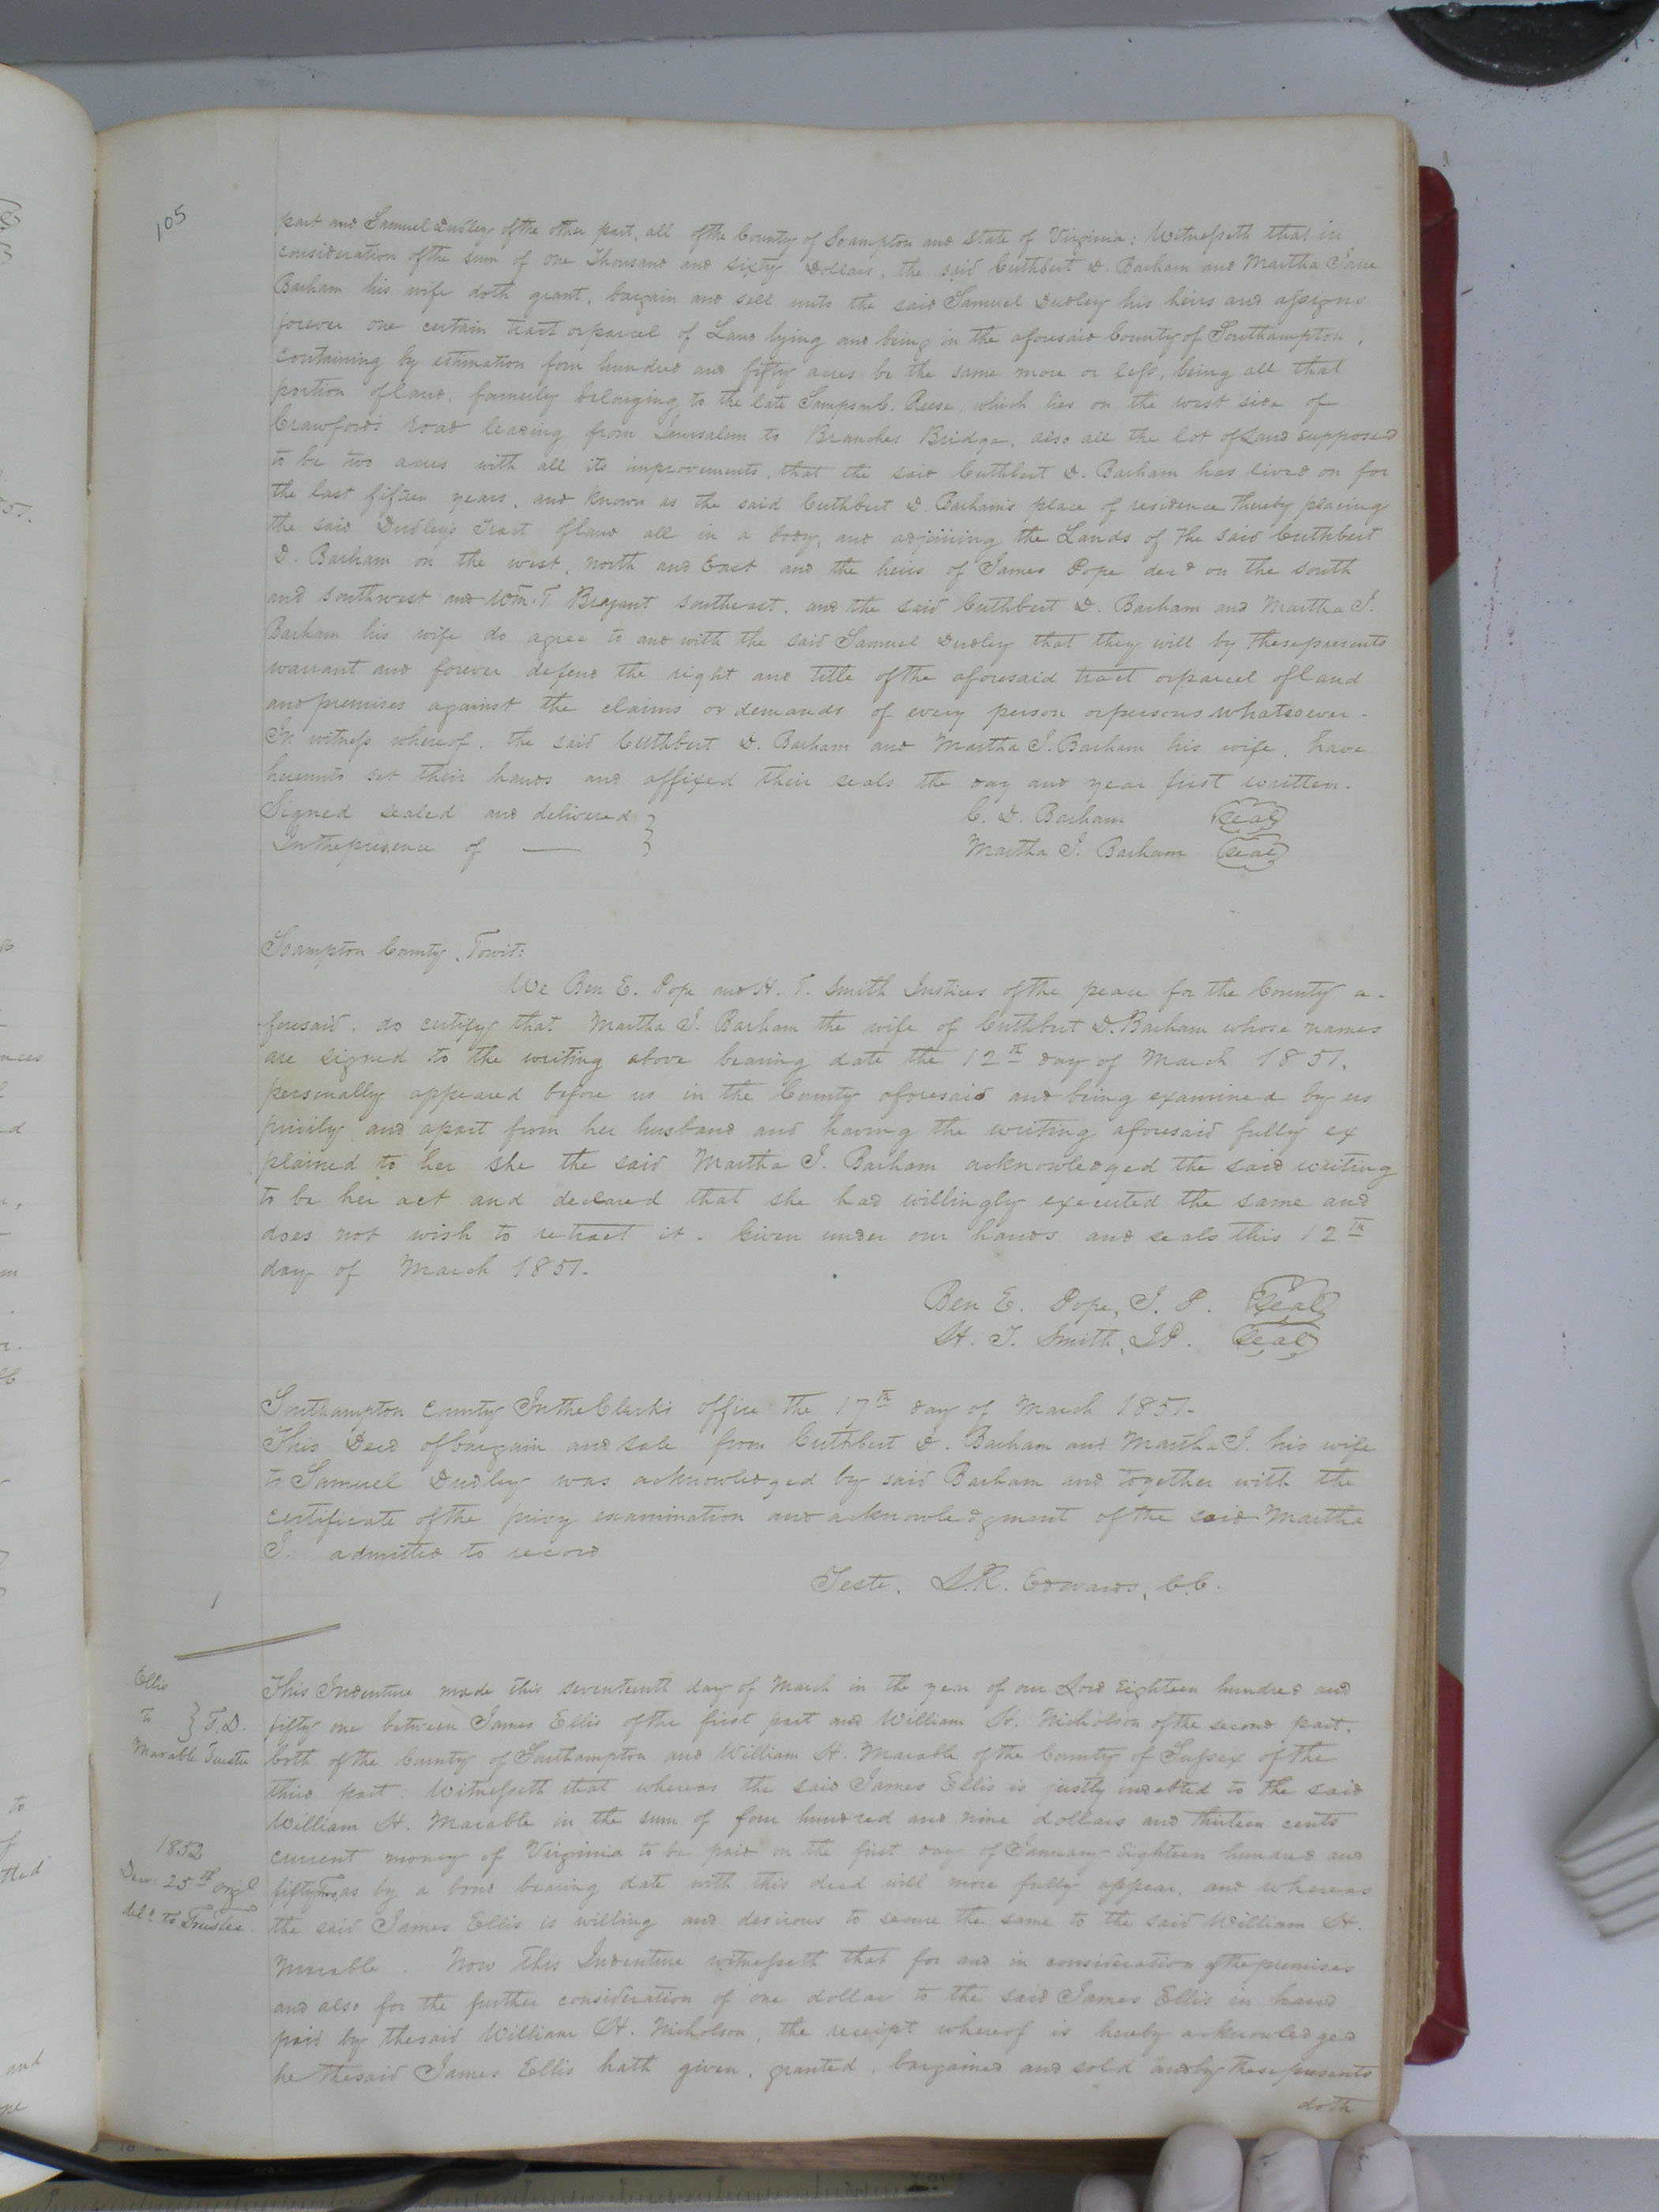 105
part and Samuel Dudley of the other part, all of the County of Soampton and State of Virginia; Witnesseth that in
consideration of the sum of one Thousand and sixty Dollars, the said Cuthbert D. Barham and Martha Jane
Barham his wife doth grant, bargain and sell unto the said Samuel Dudley his heirs and assigns
forever one certain tract or parcel of Land lying and being in the aforesaid County of Southampton,
containing by estimation four hundred and fifty acres be the same more or less, being all that
portion of land, formerly belonging to the late Sampson C. Reese, which lies on the west side of
Crawford's Road leading from Jerusalem to Branches Bridge, also all the lot of Land supposed
to be two acres with all its improvements, that the said Cuthbert D. Barham has lived on for
the last fifteen years, and known as the said Cuthbert D. Barham's place of residence thereby placing
the said Dudley's Tract of land all in a body, and adjoining the Lands of the said Cuthbert
D. Barham on the west, north and East and the heirs of James Pope decd on the south
and southwest and Wm. T. Bryant southeast, and the said Cuthbert D. Barham and Martha J.
Barham his wife do agree to and with the said Samuel Dudley that they will by these presents
warrant and forever defend the right and title of the aforesaid tract or parcel of land
and premises against the claims or demands of every person or persons whatsoever.
In witness whereof, the said Cuthbert D. Barham and Martha J. Barham his wife, have
hereunto set their hands and affixed their seals the day and year first written.
Signed sealed and delivered } C. D. Barham (seal)
In the presence of — } Martha J. Barham (seal)
Soampton County, Towit:
We Ben E. Pope and H. T. Smith Justices of the peace for the County a-
foresaid, do certify that Martha J. Barham the wife of Cuthbert D. Barham whose names
are signed to the writing above bearing date the 12th day of March 1851,
personally appeared before us in the County aforesaid and being examined by us
privily and apart from her husband and having the writing aforesaid fully ex
plained to her she the said Martha J. Barham acknowledged the said writing
to be her act and declared that she had willingly executed the same and
does not wish to retract it. Given under our hands and seals this 12th
day of March 1851.
Ben E. Pope, J. P. (seal)
H. T. Smith, J P. (seal)
Southampton County In the Clerk's office the 17th day of March 1851.
This Deed of bargain and sale from Cuthbert D. Barham and Martha J. his wife
to Samuel Dudley was acknowledged by said Barham and together with the
certificate of the privy examination and acknowledgment of the said Martha
J. admitted to record
Teste, L. R. Edwards, C.C.
Ellis
to } T.D.
Marable Trustee
1852
Decr. 25th origl
deld to Trustee.
This Indenture made this seventeenth day of March in the year of our Lord Eighteen hundred and
fifty one between James Ellis of the first part and William H. Nicholson of the second part,
both of the County of Southampton and William H. Marable of the County of Sussex of the
third part: Witnesseth that whereas the said James Ellis is justly indebted to the said
William H. Marable in the sum of four hundred and nine dollars and thirteen cents
current money of Virginia to be paid on the first day of January Eighteen hundred and
fifty Two, as by a bond bearing date with this deed will more fully appear, and whereas
the said James Ellis is willing and desirous to secure the same to the said William H.
Marable. Now This Indenture witnesseth that for and in consideration of the premises
and also for the further consideration of one dollar to the said James Ellis in hand
paid by the said William H. Nicholson, the receipt whereof is hereby acknowledged
he the said James Ellis hath given, granted, bargained and sold and by these presents
doth